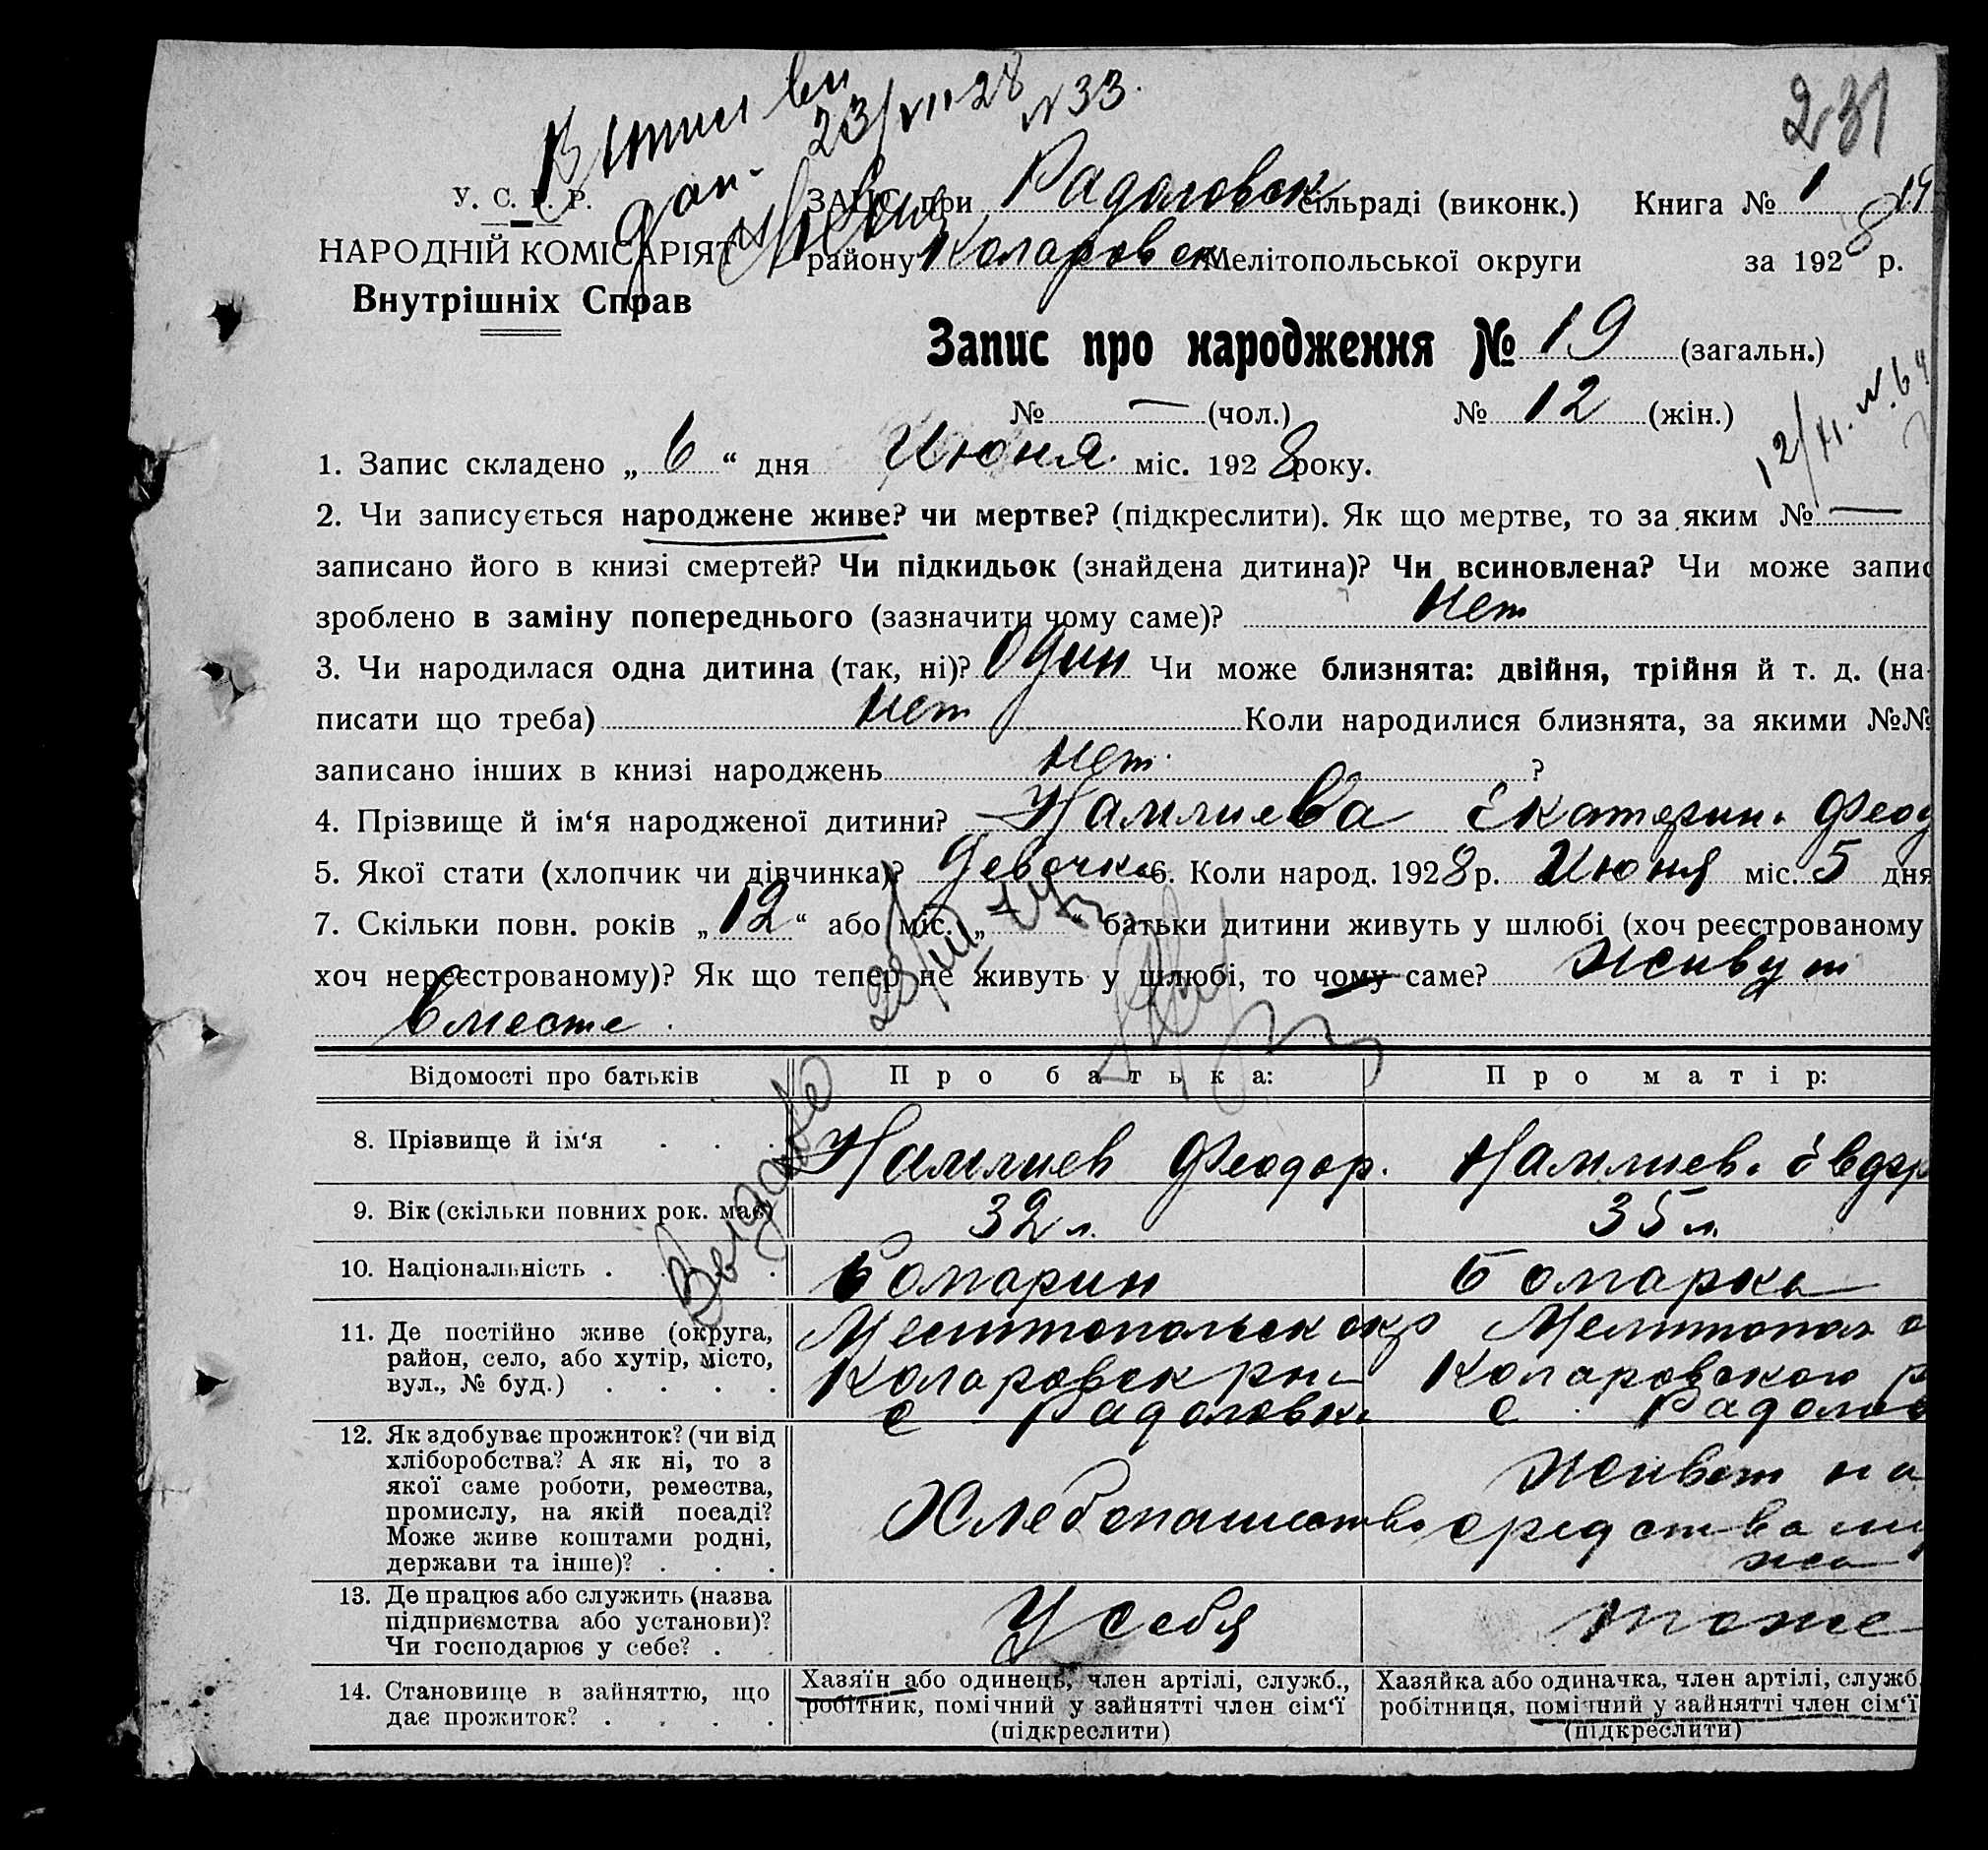 23/VII 28 N 33.
231
У. С. Р. Р.
ЗАГС при Радоловск сільраді (виконк.) Книга № 1
НАРОДНІЙ КОМІСАРІЯТ
району Коларовск Мелітопольської округи за 1928 р.
Внутрішніх Справ
Запис про народження № 19 (загальн.)
№ — (чол.) № 12 (жін.)
1. Запис складено „ 6 “ дня Июня міс. 1928 року.
2. Чи записується народжене живе? чи мертве? (підкреслити). Як що мертве, то за яким № —
записано його в книзі смертей? Чи підкидьок (знайдена дитина)? Чи всиновлена? Чи може запис
зроблено в заміну попереднього (зазначити чому саме)? нет
3. Чи народилася одна дитина (так, ні)? Один Чи може близнята: двійня, трійня й т. д. (на-
писати що треба) нет Коли народилися близнята, за якими №№
записано інших в книзі народжень нет ?
4. Прізвище й ім‘я народженої дитини? Екатерин. Феод
5. Якої стати (хлопчик чи дівчинка)? Девочка 6. Коли народ. 1928 р. Июня міс. 5 дня
7. Скільки повн. років „ 12 “ або міс. „ “ батьки дитини живуть у шлюбі (хоч реєстрованому
хоч нереєстрованому)? Як що тепер не живуть у шлюбі, то чому саме? Живут
вместе.
Відомості про батьків Про батька: Про матір:
8. Прізвище й ім‘я . . . Феодор.
9. Вік (скільки повних рок. має) 32 л. 35 л.
10. Національність . . . Болгарин Болгарка
11. Де постійно живе (округа, Мелитопольск окр
район, село, або хутір, місто, Коларовск рн Коларовского р
вул., № буд.) . . . . с Радоловка с. Радолов
12. Як здобуває прожиток? (чи від
хліборобства? А як ні, то з
якої саме роботи, ремества, Живет на
промислу, на якій посаді? Хлебопашество средства му
Може живе коштами родні, жа
держави та інше)? . . .
13. Де працює або служить (назва
підприємства або установи)? У себя тоже
Чи господарює у себе? . .
14. Становище в зайняттю, що Хазяїн або одинець, член артілі, служб., Хазяйка або одиначка, член артілі, служб.
дає прожиток? . . . . робітник, помічний у зайнятті член сім‘ї робітниця, помічний у зайнятті член сім‘ї
(підкреслити) (підкреслити)